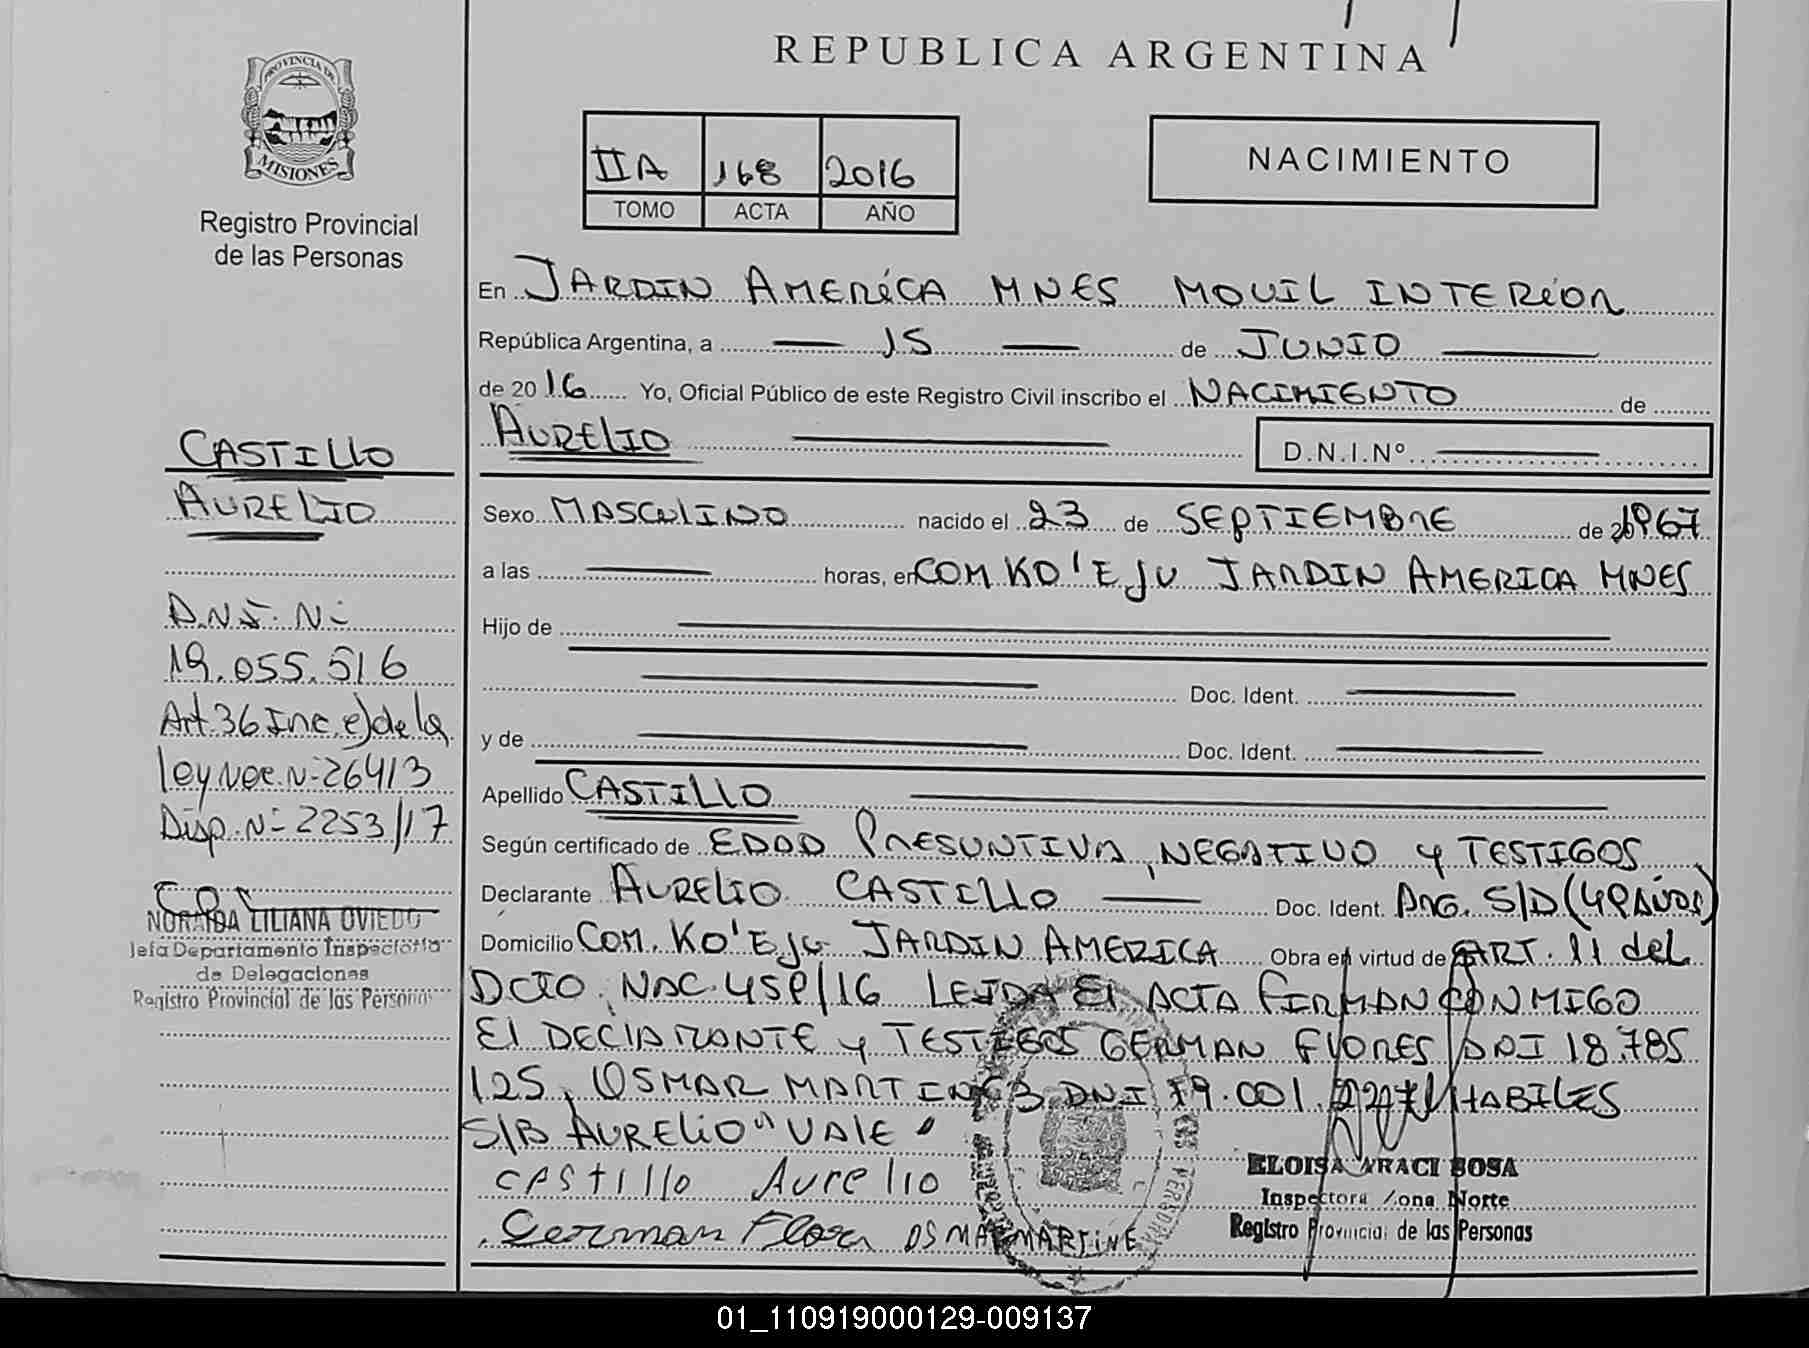 REPUBLICA ARGENTINA
PROVINCIA DE
MISIONES
Registro Provincial
de las Personas
IIA 168 2016
TOMO ACTA AÑO
NACIMIENTO
En JARDIN AMERICA MNES MOVIL INTERIOR
República Argentina, a 15 de JUNIO
de 2016 Yo, Oficial Público de este Registro Civil inscribo el NACIMIENTO de
AURELIO D.N.I.Nº
Sexo MASCULINO nacido el 23 de SEPTIEMBRE de 1967
a las horas, en COM KO'EJU JARDIN AMERICA MNES
Hijo de
Doc. Ident.
y de Doc. Ident.
Apellido CASTILLO
Según certificado de EDAD PRESUNTIVA, NEGATIVO y TESTIGOS
Declarante AURELIO CASTILLO Doc. Ident. ARG. S/D (49 AÑOS)
Domicilio COM. KO'EJU JARDIN AMERICA Obra en virtud de ART. 11 del
DCTO. NAC. 459/16 LEIDA EL ACTA FIRMAN CONMIGO
El DECLARANTE y TESTIGOS GERMAN FLORES DNI 18.785
125, OSMAR MARTINEZ DNI 19.001. HABILES
S/B AURELIO" VALE
CASTillo Aurelio
German Flor OSMAR MARTINE
ELOISA ARACI SOSA
Inspectora Zona Norte
Registro Provincial de las Personas
CASTILLO
AURELIO
D.N.I. N-
19.055.516
Art.36 Inc e) de la
ley Nac. N-26413
Disp. N- 2253/17
NORAIDA LILIANA OVIEDO
Jefa Departamento Inspectoría
de Delegaciones
Registro Provincial de las Personas
01_110919000129-009137